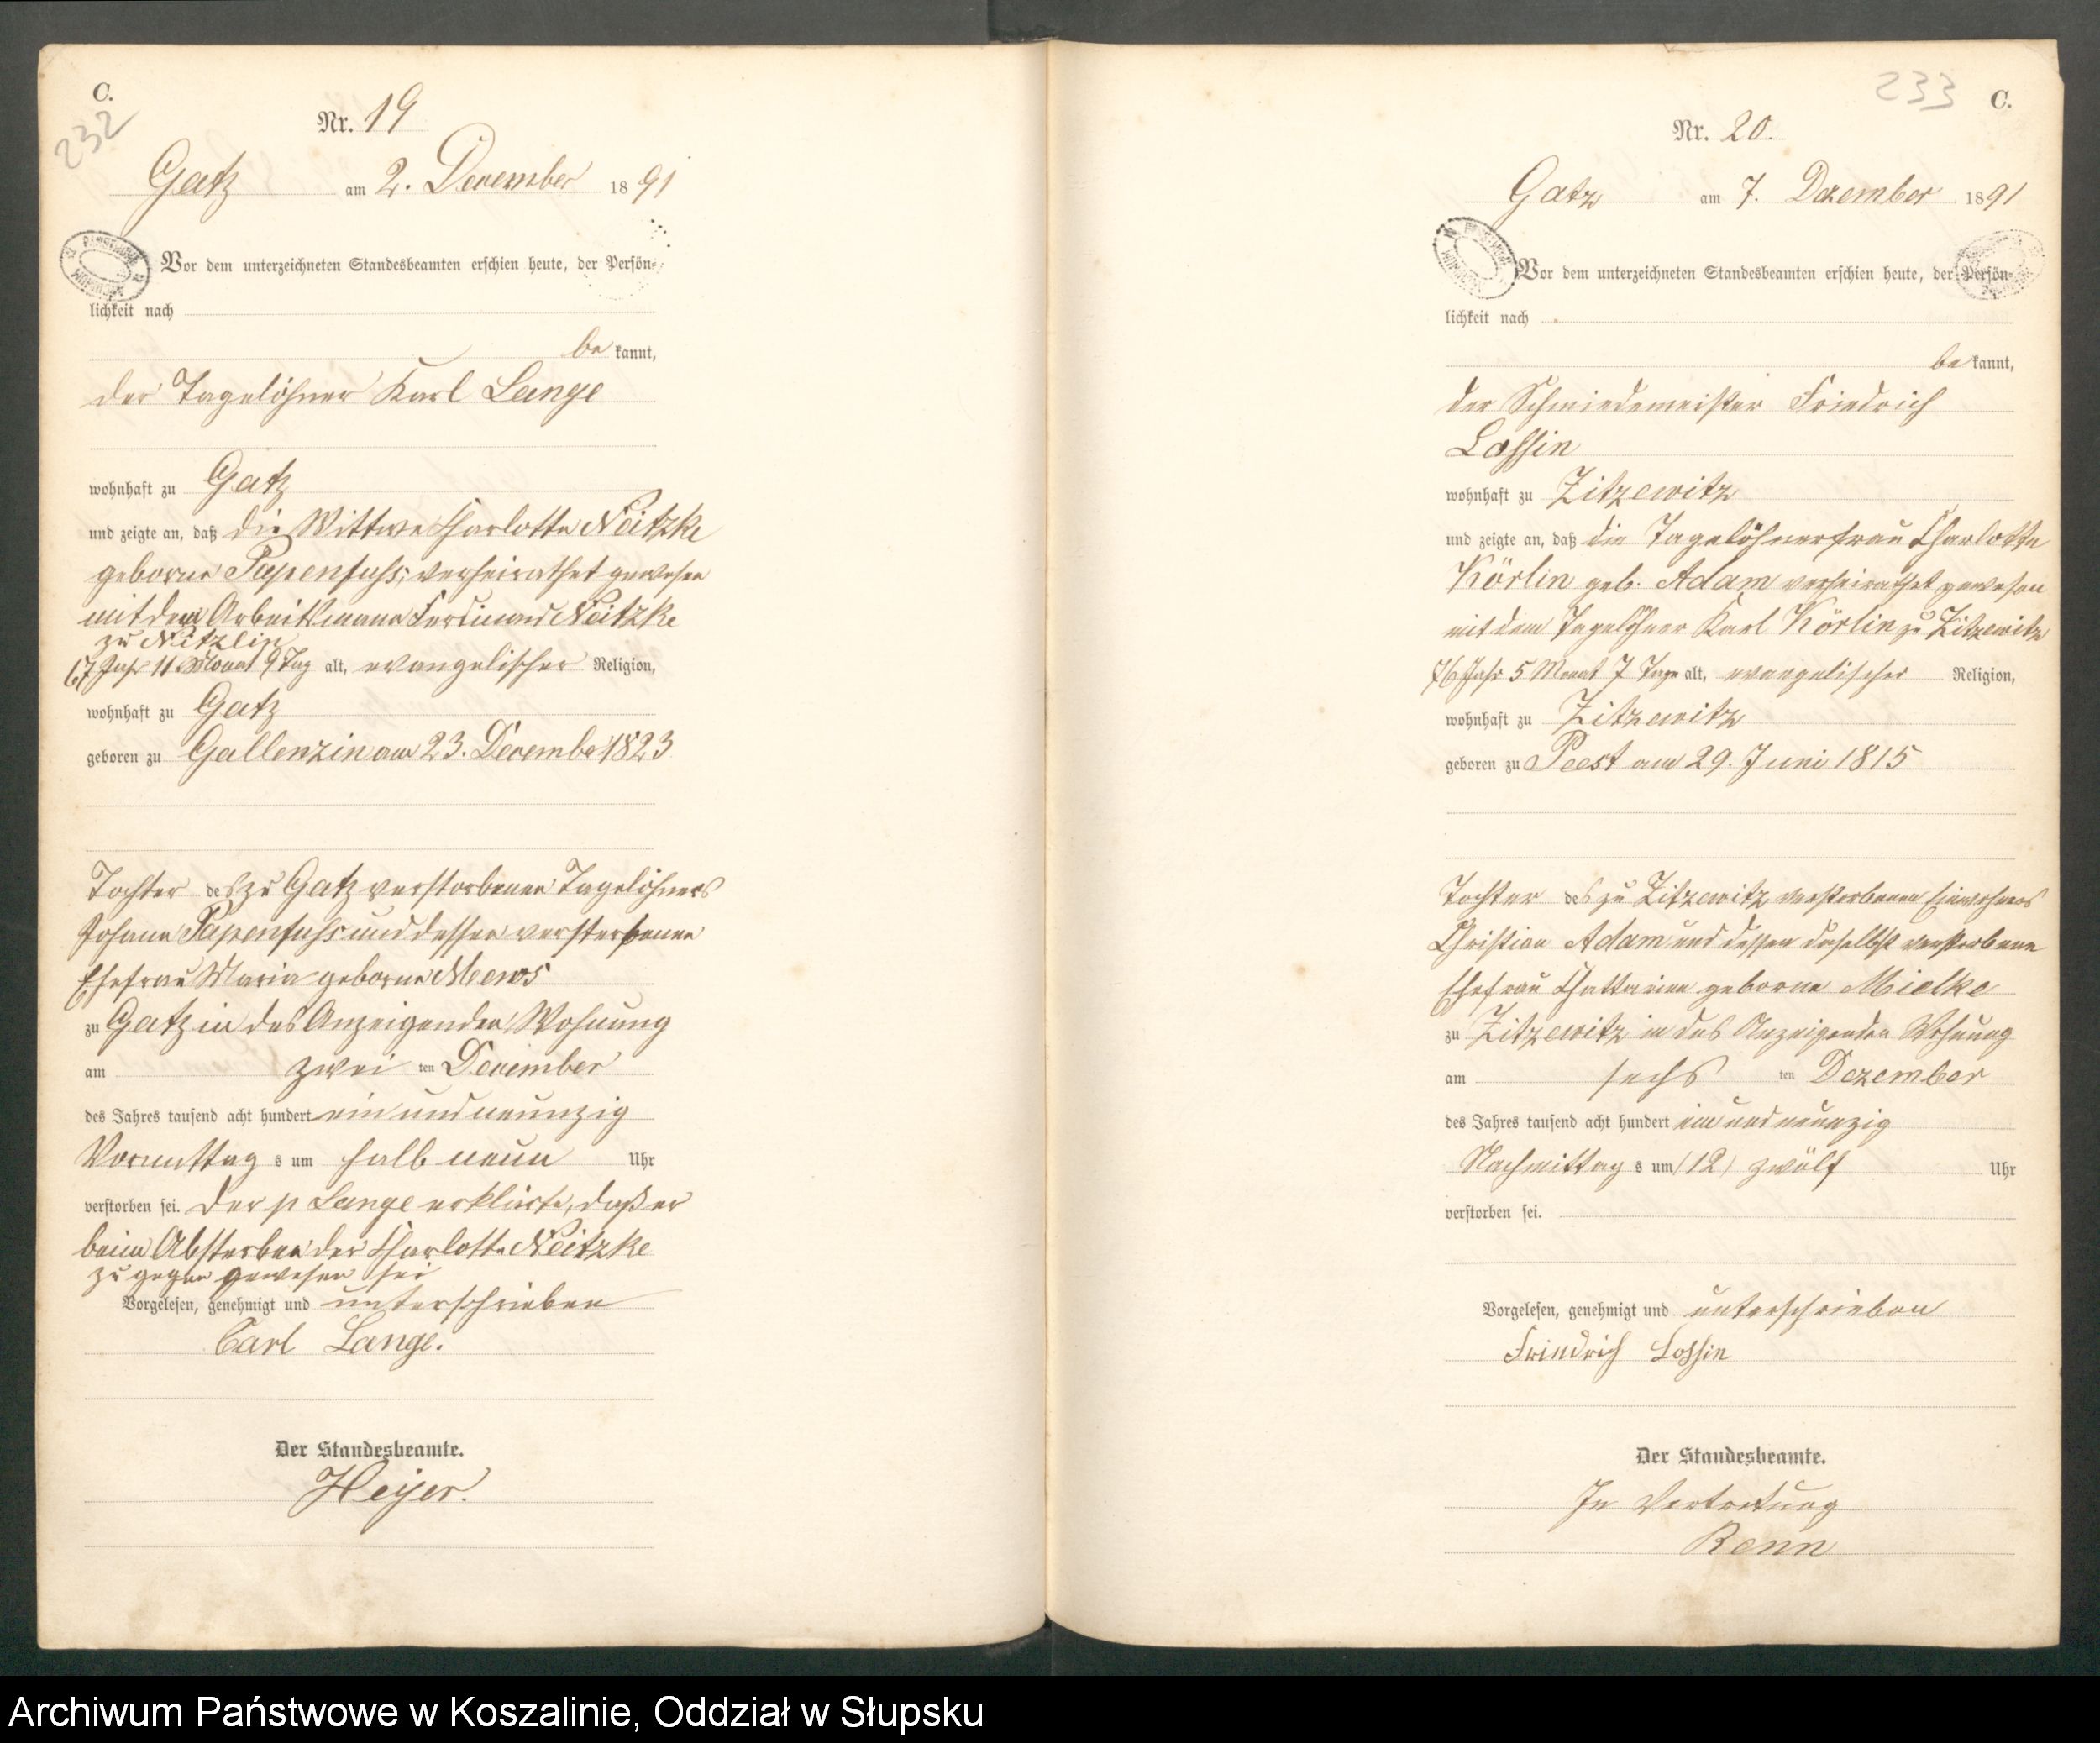 C.
232
Nr. 19
Gatz am 2. December 1891
Vor dem unterzeichneten Standesbeamten erschien heute, der Persön-
lichkeit nach
be kannt,
der Tagelöhner Karl Lange
wohnhaft zu Gatz
und zeigte an, daß die Wittwe Charlotte Neitzke
geborne Papenfuhs, verheirathet gewesen
mit dem Arbeitsmann Ferdinand Neitzke
zu Nitzlin
67 Jahr 11 Monat 9 Tag alt, evangelischer Religion,
wohnhaft zu Gatz
geboren zu Gallenzin am 23. December 1823
Tochter des zu Gatz verstorbenen Tagelöhners
Johann Papenfuhs und dessen verstorbenen
Ehefrau Maria geborne Mews
zu Gatz in des Anzeigenden Wohnung
am zwei ten December
des Jahres tausend acht hundert ein und neunzig
Vormittag s um halb neun Uhr
verstorben sei. Der p Lange erklärte, daß er
beim Absterben der Charlotte Neitzke
zugegen gewesen sei
Vorgelesen, genehmigt und unterschrieben
Carl Lange.
Der Standesbeamte.
Heyer.
233
C.
Nr. 20.
Gatz am 7. Dezember 1891
Vor dem unterzeichneten Standesbeamten erschien heute, der Persön-
lichkeit nach
be kannt,
der Schmiedemeister Friedrich
Lossin
wohnhaft zu Zitzewitz
und zeigte an, daß die Tagelöhnerfrau Charlotte
Körlin geb. Adam verheirathet gewesen
mit dem Tagelöhner Karl Körlin zu Zitzewitz
76 Jahr 5 Monat 7 Tage alt, evangelischer Religion,
wohnhaft zu Zitzewitz
geboren zu Peest am 29. Juni 1815
Tochter des zu Zitzewitz verstorbenen Einwohners
Christian Adam und dessen daselbst verstorbene
Ehefrau Chattarine geborne Mielke
zu Zitzewitz in des Anzeigenden Wohnung
am sechs ten Dezember
des Jahres tausend acht hundert ein und neunzig
Nachmittag s um (12) zwölf Uhr
verstorben sei.
Vorgelesen, genehmigt und unterschrieben
Friedrich Lossin
Der Standesbeamte.
In Vertretung
Renn
Archiwum Państwowe w Koszalinie, Oddział w Słupsku